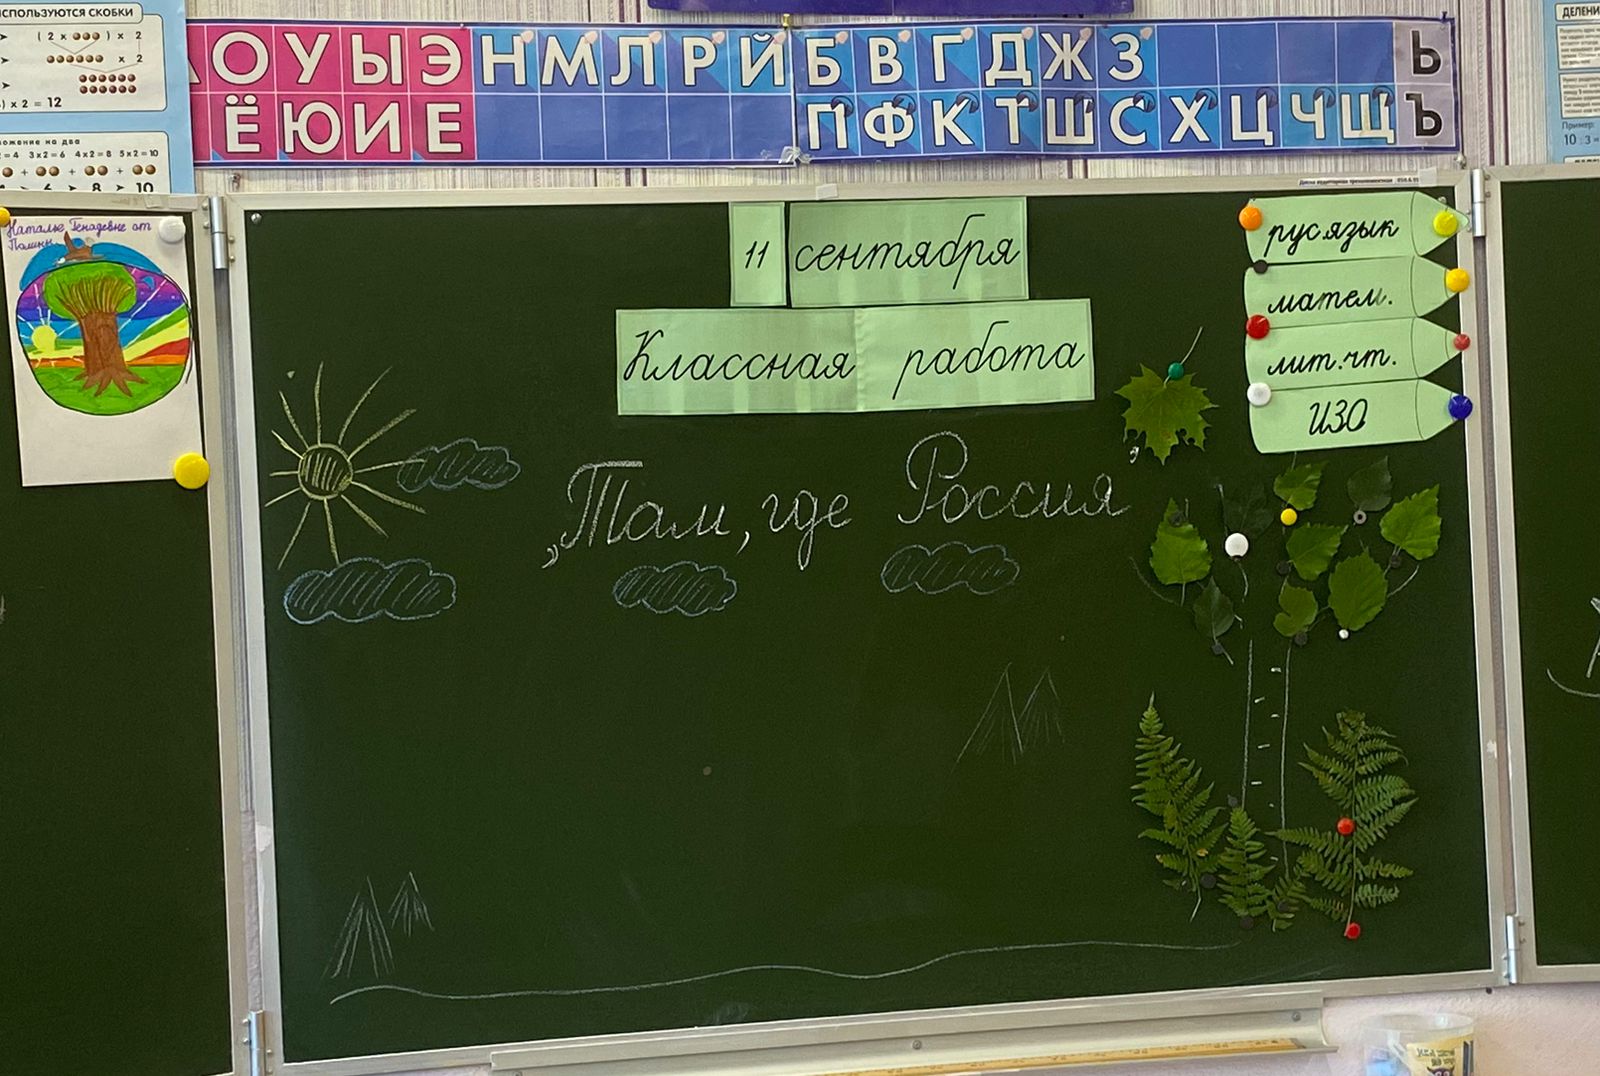 ИСПОЛЬЗУЮТСЯ СКОБКИ
( 2 x ) x 2
x 2
) x 2 = 12
ножение на два
2=4 3x2=6 4x2=8 5x2=10
+ + +
4 6 8 10
О У Ы Э Н М Л Р Й Б В Г Д Ж З Ь
Ё Ю И Е П Ф К Т Ш С Х Ц Ч Щ Ъ
ДЕЛЕНИ
Пример:
10 : 3 =
Наталье Генадевне от
Полины
11 сентября
Классная работа
рус.язык
матем.
лит.чт.
ИЗО
„Там, где Россия"